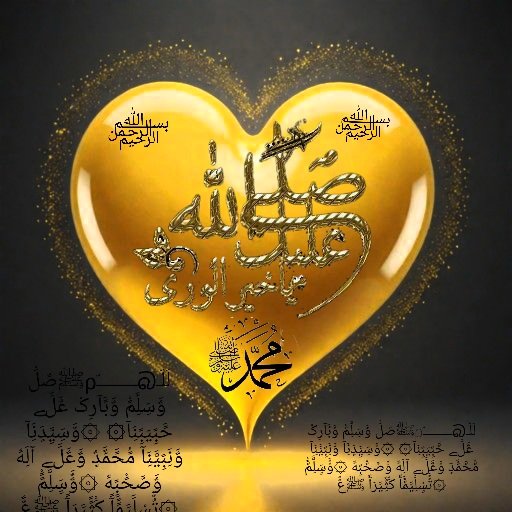 بسم الله الرحمن الرحيم
بسم الله الرحمن الرحيم
صلى الله
عليك
يا خير الورى
محمد ﷺ
صَلِّ
وَّسَلِّمْ وَّبَارِكْ عَلٰے
حَبِيْبِنَا۞ ۞وَّسَيِّدِنَا
وَّنَبِيِّنَا مُحَمَّدٍ وَّعَلٰے آلِهٖ
وَصَحْبِهٖ ۞وَّسَلِّمْ
۞تَسْلِيْمًا كَثِيْرًا ﷺ
صَلِّ وَّسَلِّمْ وَّبَارِكْ
عَلٰے حَبِيْبِنَا۞ ۞وَّسَيِّدِنَا وَّنَبِيِّنَا
مُحَمَّدٍ وَّعَلٰے آلِهٖ وَصَحْبِهٖ ۞وَّسَلِّمْ
۞تَسْلِيْمًا كَثِيْرًا ﷺ